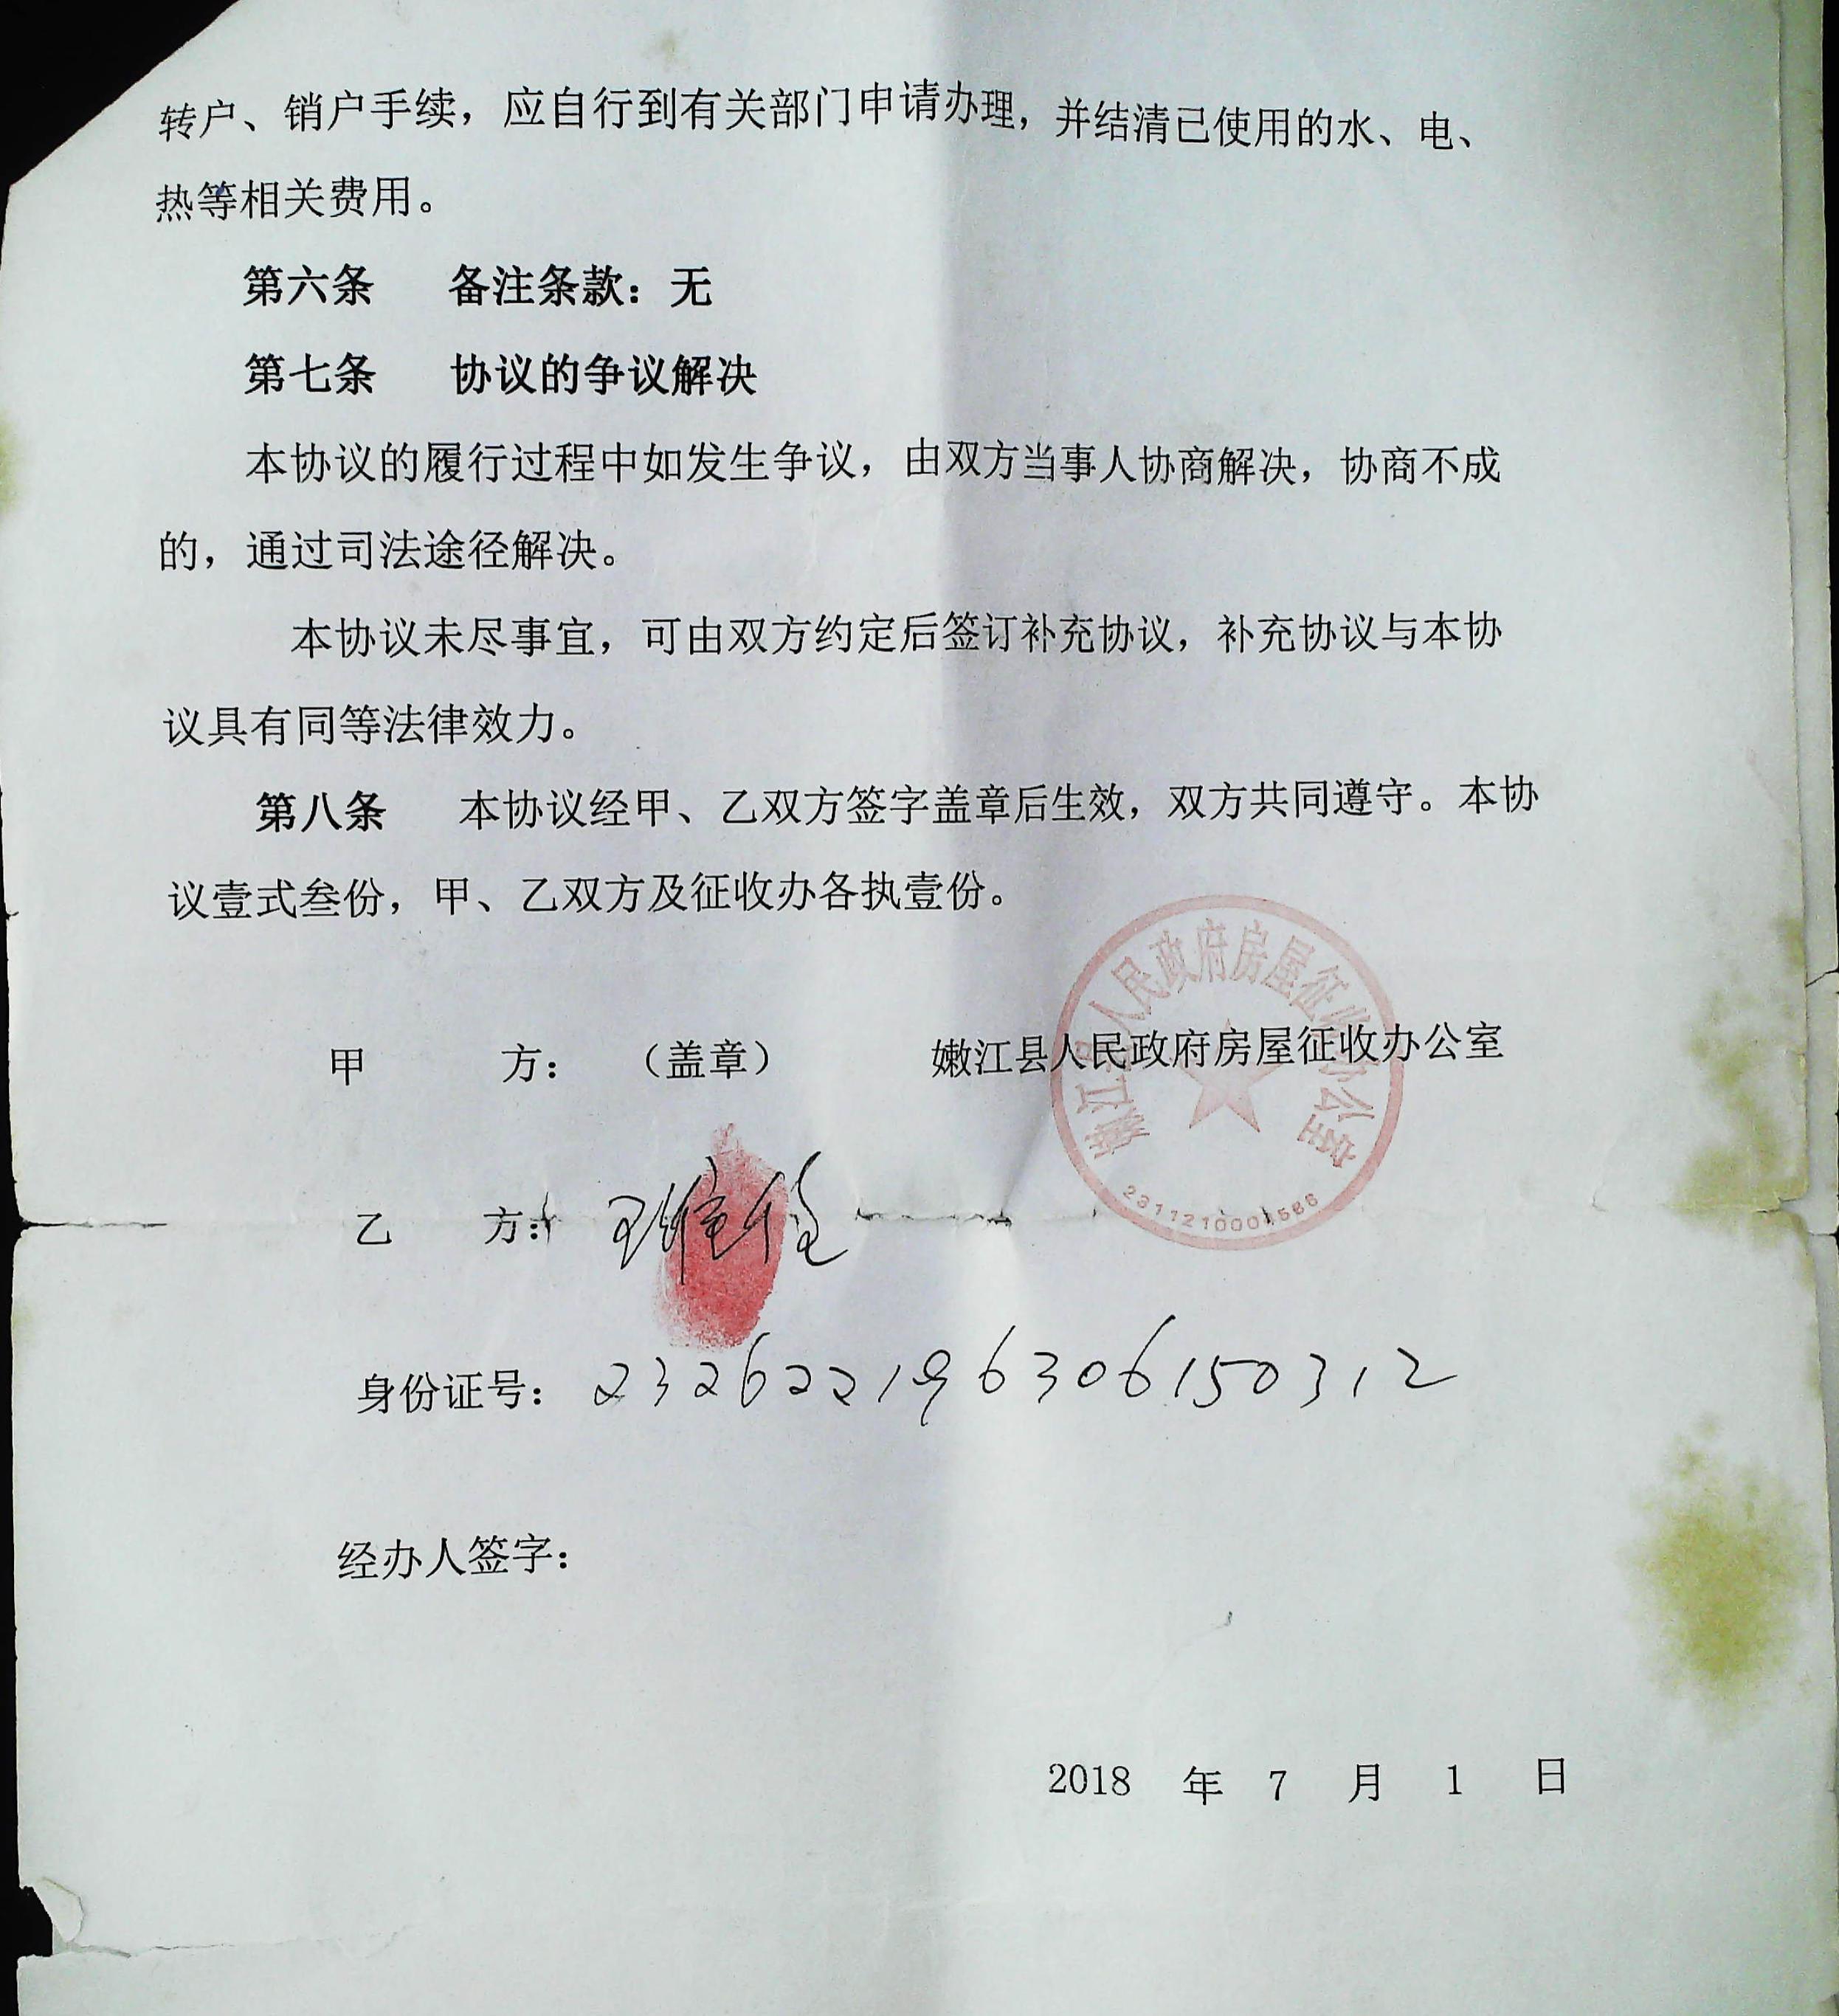 转户、销户手续，应自行到有关部门申请办理，并结清已使用的水、电、
热等相关费用。
第六条 备注条款：无
第七条 协议的争议解决
本协议的履行过程中如发生争议，由双方当事人协商解决，协商不成
的，通过司法途径解决。
本协议未尽事宜，可由双方约定后签订补充协议，补充协议与本协
议具有同等法律效力。
第八条 本协议经甲、乙双方签字盖章后生效，双方共同遵守。本协
议壹式叁份，甲、乙双方及征收办各执壹份。
嫩江县人民政府房屋征收办公室
甲 方：（盖章） 嫩江县人民政府房屋征收办公室
乙 方：
身份证号：232622196306150312
经办人签字：
2018 年 7 月 1 日